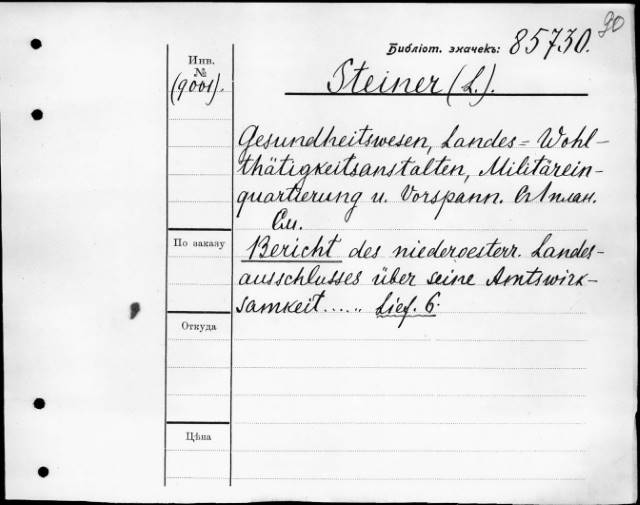 90
Библіот. значекъ: 85730.
Инв.
№
(9001).
Steiner (L.).
Gesundheitswesen, Landes=Wohl-
thätigkeitsanstalten, Militärein-
quartierung u. Vorspann. Съ 1 план.
См.
По заказу
Bericht des niederoesterr. Landes-
ausschlusses über seine Amtswirk-
samkeit..... Lief. 6.
Откуда
Цѣна